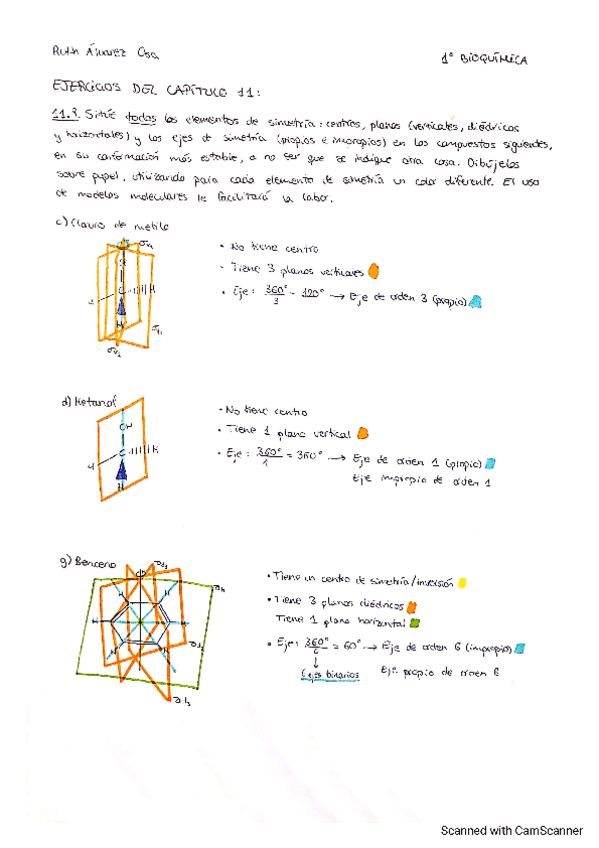 Ruth Álvarez Osa
1º BIOQUÍMICA
EJERCICIOS DEL CAPÍTULO 11:
11.9. Sitúe todos los elementos de simetría: centros, planos (verticales, diédricos
y horizontales) y los ejes de simetría (propios e impropios) en los compuestos siguientes,
en su conformación más estable, a no ser que se indique otra cosa. Dibújelos
sobre papel, utilizando para cada elemento de simetría un color diferente. El uso
de modelos moleculares le facilitará la labor.
c) Cloruro de metilo
• No tiene centro
• Tiene 3 planos verticales
• Eje: 360°/3 = 120° → Eje de orden 3 (propio)
d) Metanol
OH
C
H
• No tiene centro
• Tiene 1 plano vertical
• Eje: 360°/1 = 360° → Eje de orden 1 (propio)
Eje impropio de orden 1
g) Benceno
• Tiene un centro de simetría/inversión
• Tiene 3 planos diédricos
Tiene 1 plano horizontal
• Eje: 360°/6 = 60° → Eje de orden 6 (impropio)
6 ejes binarios
Eje propio de orden 6
Scanned with CamScanner